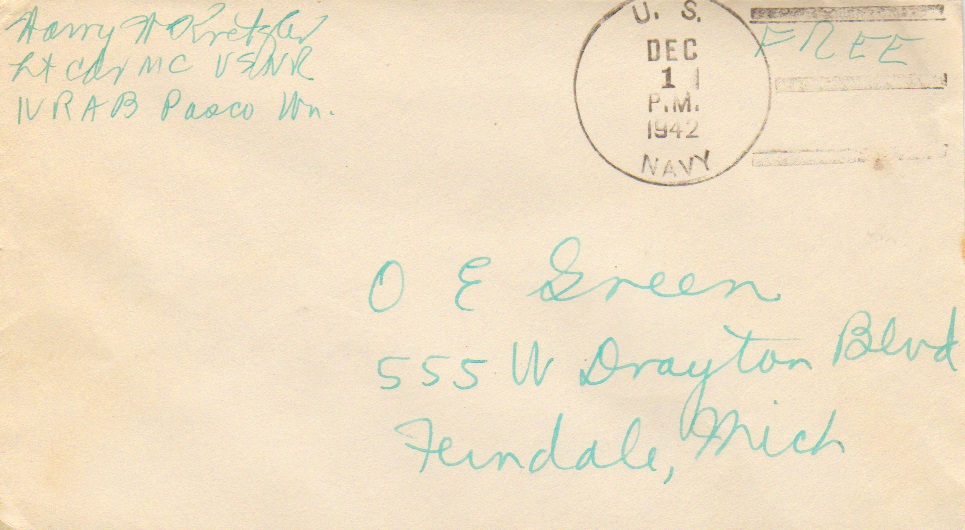 Harry H Kretzler
Lt Cdr MC USNR
NRAB Pasco Wn.
U. S.
DEC
1
P.M.
1942
NAVY
FREE
O E Green
555 W Drayton Blvd
Ferndale, Mich